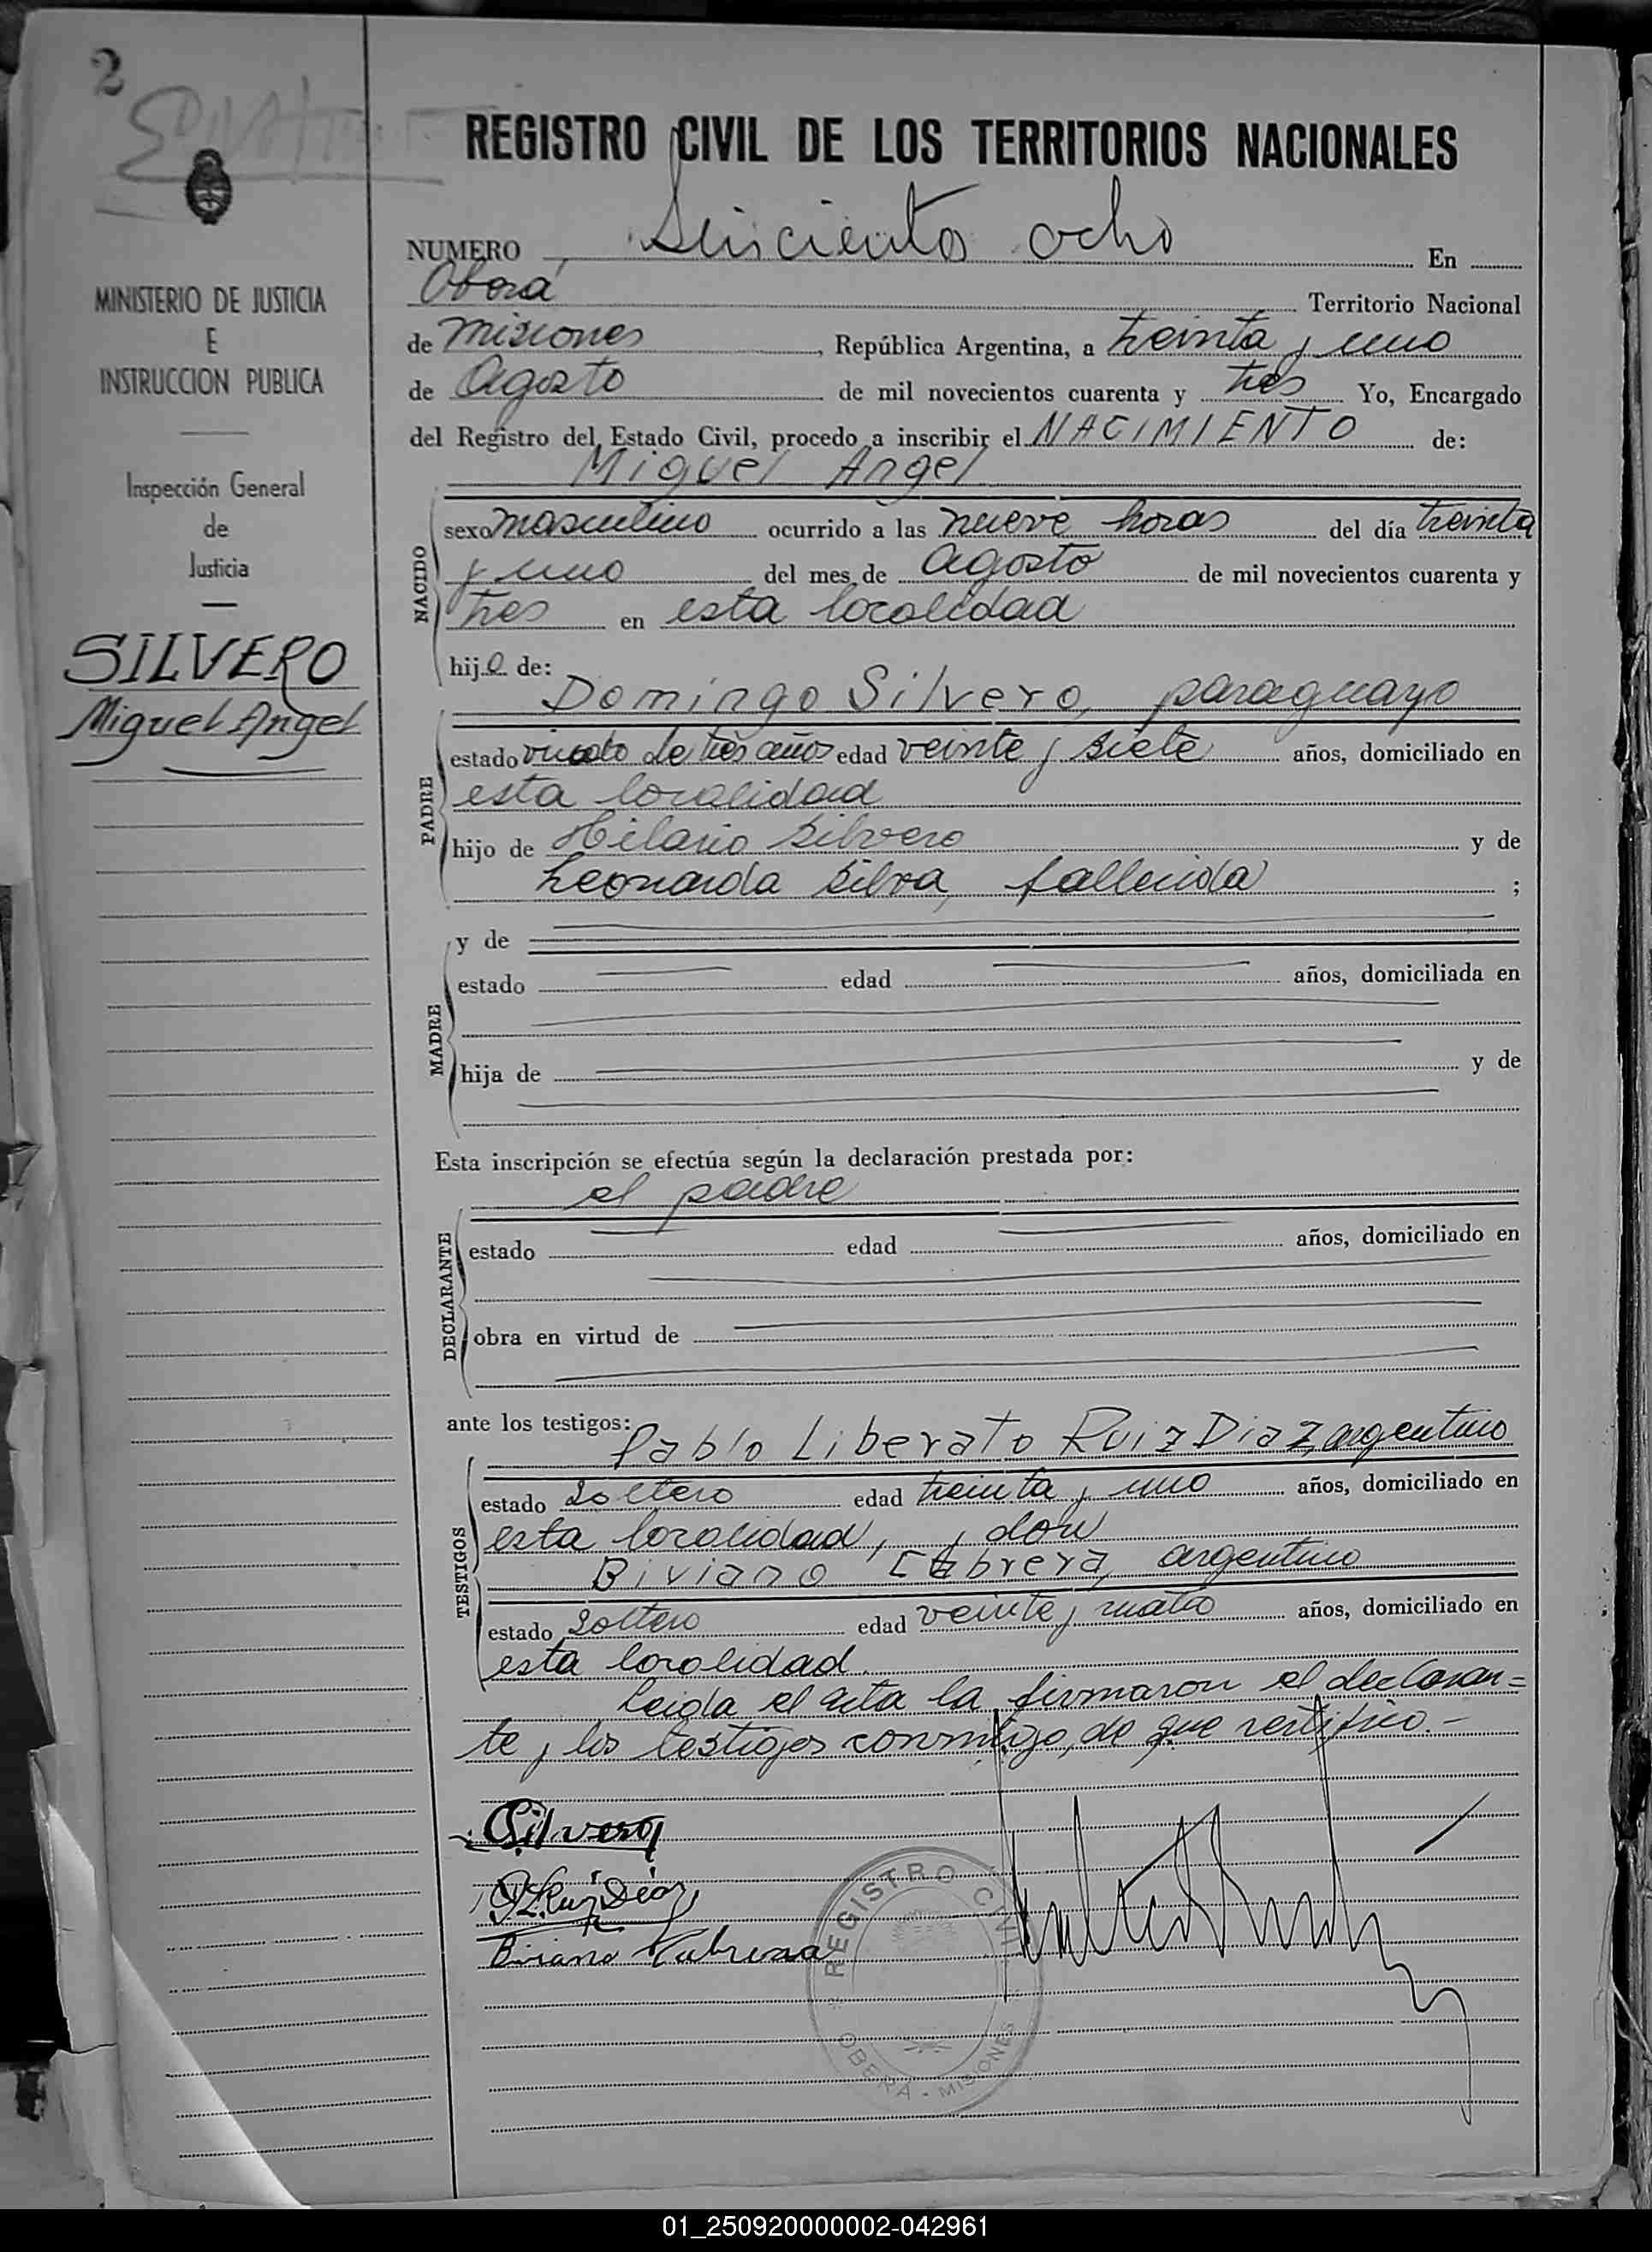 2
REGISTRO CIVIL DE LOS TERRITORIOS NACIONALES
NUMERO Seisciento ocho En
Oberá Territorio Nacional
de Misiones, República Argentina, a treinta y uno
de Agosto de mil novecientos cuarenta y tres Yo, Encargado
del Registro del Estado Civil, procedo a inscribir el NACIMIENTO de:
Miguel Angel
MINISTERIO DE JUSTICIA
E
INSTRUCCION PUBLICA
Inspección General
de
Justicia
SILVERO
Miguel Angel
NACIDO
sexo masculino ocurrido a las nueve horas del día treinta
y uno del mes de agosto de mil novecientos cuarenta y
tres en esta localidad
hijo de:
Domingo Silvero, paraguayo
PADRE
estado viudo de tres años edad veinte y siete años, domiciliado en
esta localidad
hijo de Hilario Silvero y de
Leonarda Silva, fallecida ;
MADRE
y de
estado edad años, domiciliada en
hija de y de
Esta inscripción se efectúa según la declaración prestada por:
el padre
DECLARANTE
estado edad años, domiciliado en
obra en virtud de
ante los testigos:
Pablo Liberato Ruiz Diaz, argentino
TESTIGOS
estado soltero edad treinta y uno años, domiciliado en
esta localidad, y don
Biviano Cabrera, argentino
estado soltero edad veinte y cuatro años, domiciliado en
esta localidad.
Leida el acta la firmaron el declaran=
te y los testigos conmigo, de que certifico.-
Silvero
P L Ruiz Diaz
Biviano Cabrera
REGISTRO CIVIL
OBERA - MISIONES
01_250920000002-042961